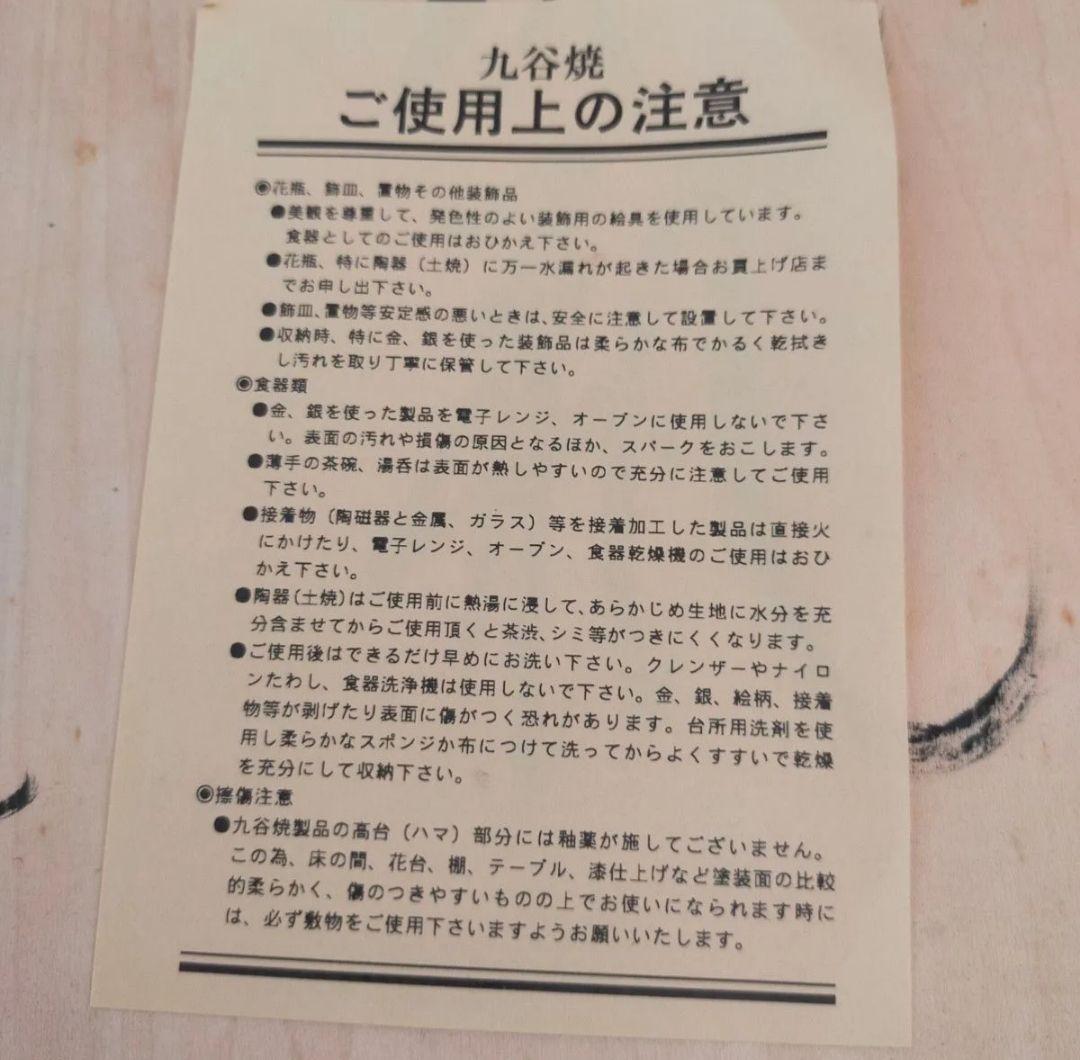 九谷焼
ご使用上の注意
◉花瓶、飾皿、置物その他装飾品
●美観を尊重して、発色性のよい装飾用の絵具を使用しています。
食器としてのご使用はおひかえ下さい。
●花瓶、特に陶器（土焼）に万一水漏れが起きた場合お買上げ店ま
でお申し出下さい。
●飾皿、置物等安定感の悪いときは、安全に注意して設置して下さい。
●収納時、特に金、銀を使った装飾品は柔らかな布でかるく乾拭き
し汚れを取り丁寧に保管して下さい。
◉食器類
●金、銀を使った製品を電子レンジ、オーブンに使用しないで下さ
い。表面の汚れや損傷の原因となるほか、スパークをおこします。
●薄手の茶碗、湯呑は表面が熱しやすいので充分に注意してご使用
下さい。
●接着物（陶磁器と金属、ガラス）等を接着加工した製品は直接火
にかけたり、電子レンジ、オーブン、食器乾燥機のご使用はおひ
かえ下さい。
●陶器（土焼）はご使用前に熱湯に浸して、あらかじめ生地に水分を充
分含ませてからご使用頂くと茶渋、シミ等がつきにくくなります。
●ご使用後はできるだけ早めにお洗い下さい。クレンザーやナイロ
ンたわし、食器洗浄機は使用しないで下さい。金、銀、絵柄、接着
物等が剥げたり表面に傷がつく恐れがあります。台所用洗剤を使
用し柔らかなスポンジか布につけて洗ってからよくすすいで乾燥
を充分にして収納下さい。
◉擦傷注意
●九谷焼製品の高台（ハマ）部分には釉薬が施してございません。
この為、床の間、花台、棚、テーブル、漆仕上げなど塗装面の比較
的柔らかく、傷のつきやすいものの上でお使いになられます時に
は、必ず敷物をご使用下さいますようお願いいたします。